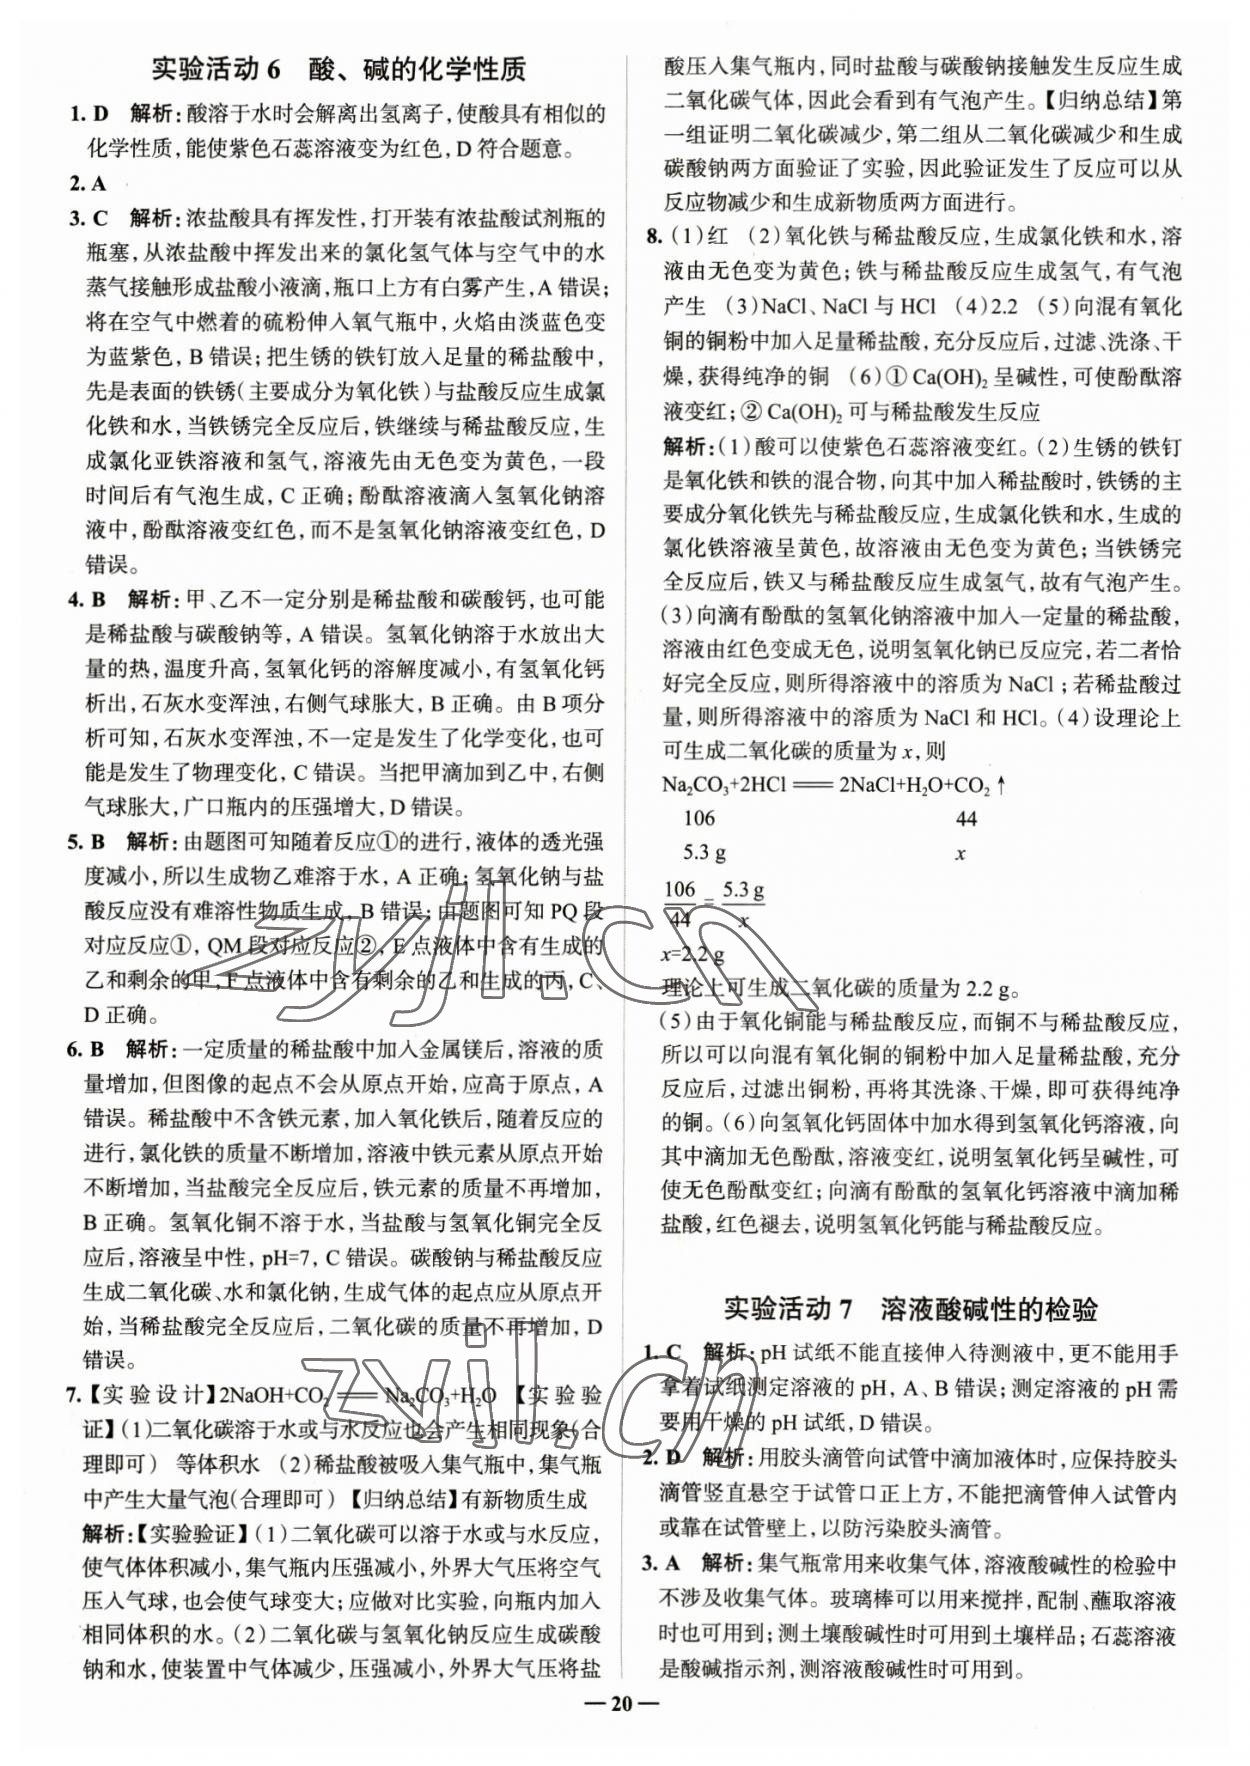 实验活动6　酸、碱的化学性质
1. D　解析:酸溶于水时会解离出氢离子,使酸具有相似的
化学性质,能使紫色石蕊溶液变为红色,D符合题意。
2. A
3. C　解析:浓盐酸具有挥发性,打开装有浓盐酸试剂瓶的
瓶塞,从浓盐酸中挥发出来的氯化氢气体与空气中的水
蒸气接触形成盐酸小液滴,瓶口上方有白雾产生,A错误;
将在空气中燃着的硫粉伸入氧气瓶中,火焰由淡蓝色变
为蓝紫色,B错误;把生锈的铁钉放入足量的稀盐酸中,
先是表面的铁锈(主要成分为氧化铁)与盐酸反应生成氯
化铁和水,当铁锈完全反应后,铁继续与稀盐酸反应,生
成氯化亚铁溶液和氢气,溶液先由无色变为黄色,一段
时间后有气泡生成,C正确;酚酞溶液滴入氢氧化钠溶
液中,酚酞溶液变红色,而不是氢氧化钠溶液变红色,D
错误。
4. B　解析:甲、乙不一定分别是稀盐酸和碳酸钙,也可能
是稀盐酸与碳酸钠等,A错误。氢氧化钠溶于水放出大
量的热,温度升高,氢氧化钙的溶解度减小,有氢氧化钙
析出,石灰水变浑浊,右侧气球胀大,B正确。由B项分
析可知,石灰水变浑浊,不一定是发生了化学变化,也可
能是发生了物理变化,C错误。当把甲滴加到乙中,右侧
气球胀大,广口瓶内的压强增大,D错误。
5. B　解析:由题图可知随着反应①的进行,液体的透光强
度减小,所以生成物乙难溶于水,A正确;氢氧化钠与盐
酸反应没有难溶性物质生成,B错误;由题图可知PQ段
对应反应①,QM段对应反应②,E点液体中含有生成的
乙和剩余的甲,F点液体中含有剩余的乙和生成的丙,C、
D正确。
6. B　解析:一定质量的稀盐酸中加入金属镁后,溶液的质
量增加,但图像的起点不会从原点开始,应高于原点,A
错误。稀盐酸中不含铁元素,加入氧化铁后,随着反应的
进行,氯化铁的质量不断增加,溶液中铁元素从原点开始
不断增加,当盐酸完全反应后,铁元素的质量不再增加,
B正确。氢氧化铜不溶于水,当盐酸与氢氧化铜完全反
应后,溶液呈中性,pH=7,C错误。碳酸钠与稀盐酸反应
生成二氧化碳、水和氯化钠,生成气体的起点应从原点开
始,当稀盐酸完全反应后,二氧化碳的质量不再增加,D
错误。
7.【实验设计】2NaOH+CO₂══Na₂CO₃+H₂O　【实验验
证】(1)二氧化碳溶于水或与水反应也会产生相同现象(合
理即可)　等体积水　(2)稀盐酸被吸入集气瓶中,集气瓶
中产生大量气泡(合理即可)　【归纳总结】有新物质生成
解析:【实验验证】(1)二氧化碳可以溶于水或与水反应,
使气体体积减小,集气瓶内压强减小,外界大气压将空气
压入气球,也会使气球变大;应做对比实验,向瓶内加入
相同体积的水。(2)二氧化碳与氢氧化钠反应生成碳酸
钠和水,使装置中气体减少,压强减小,外界大气压将盐
酸压入集气瓶内,同时盐酸与碳酸钠接触发生反应生成
二氧化碳气体,因此会看到有气泡产生。【归纳总结】第
一组证明二氧化碳减少,第二组从二氧化碳减少和生成
碳酸钠两方面验证了实验,因此验证发生了反应可以从
反应物减少和生成新物质两方面进行。
8. (1)红　(2)氧化铁与稀盐酸反应,生成氯化铁和水,溶
液由无色变为黄色;铁与稀盐酸反应生成氢气,有气泡
产生　(3)NaCl、NaCl与HCl　(4)2.2　(5)向混有氧化
铜的铜粉中加入足量稀盐酸,充分反应后,过滤、洗涤、干
燥,获得纯净的铜　(6)①Ca(OH)₂呈碱性,可使酚酞溶
液变红;②Ca(OH)₂可与稀盐酸发生反应
解析:(1)酸可以使紫色石蕊溶液变红。(2)生锈的铁钉
是氧化铁和铁的混合物,向其中加入稀盐酸时,铁锈的主
要成分氧化铁先与稀盐酸反应,生成氯化铁和水,生成的
氯化铁溶液呈黄色,故溶液由无色变为黄色;当铁锈完
全反应后,铁又与稀盐酸反应生成氢气,故有气泡产生。
(3)向滴有酚酞的氢氧化钠溶液中加入一定量的稀盐酸,
溶液由红色变成无色,说明氢氧化钠已反应完,若二者恰
好完全反应,则所得溶液中的溶质为NaCl;若稀盐酸过
量,则所得溶液中的溶质为NaCl和HCl。(4)设理论上
可生成二氧化碳的质量为x,则
Na₂CO₃+2HCl══2NaCl+H₂O+CO₂↑
106　　44
5.3 g　　x
106/44=5.3 g/x
x=2.2 g
理论上可生成二氧化碳的质量为2.2 g。
(5)由于氧化铜能与稀盐酸反应,而铜不与稀盐酸反应,
所以可以向混有氧化铜的铜粉中加入足量稀盐酸,充分
反应后,过滤出铜粉,再将其洗涤、干燥,即可获得纯净
的铜。(6)向氢氧化钙固体中加水得到氢氧化钙溶液,向
其中滴加无色酚酞,溶液变红,说明氢氧化钙呈碱性,可
使无色酚酞变红;向滴有酚酞的氢氧化钙溶液中滴加稀
盐酸,红色褪去,说明氢氧化钙能与稀盐酸反应。
实验活动7　溶液酸碱性的检验
1. C　解析:pH试纸不能直接伸入待测液中,更不能用手
拿着试纸测定溶液的pH,A、B错误;测定溶液的pH需
要用干燥的pH试纸,D错误。
2. D　解析:用胶头滴管向试管中滴加液体时,应保持胶头
滴管竖直悬空于试管口正上方,不能把滴管伸入试管内
或靠在试管壁上,以防污染胶头滴管。
3. A　解析:集气瓶常用来收集气体,溶液酸碱性的检验中
不涉及收集气体。玻璃棒可以用来搅拌,配制、蘸取溶液
时也可用到;测土壤酸碱性时可用到土壤样品;石蕊溶液
是酸碱指示剂,测溶液酸碱性时可用到。
— 20 —
zyjl.cn
zyjl.cn